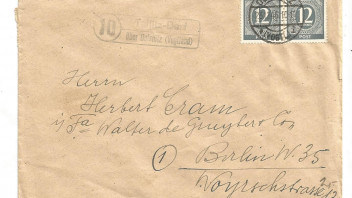 12 12
POST
10
über
Herrn
Herbert Cram
i/Fa Walter de Gruyter & Co
1 Berlin W. 35
Woyrschstrasse 13